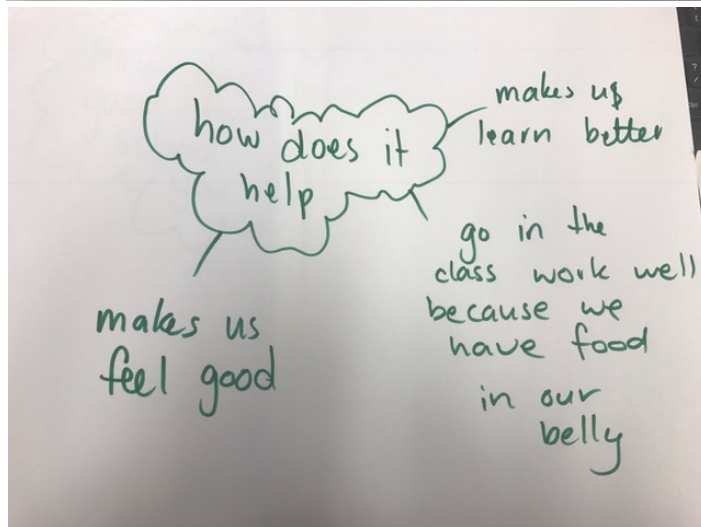 how does it
help
makes us
learn better
go in the
class work well
because we
have food
in our
belly
makes us
feel good